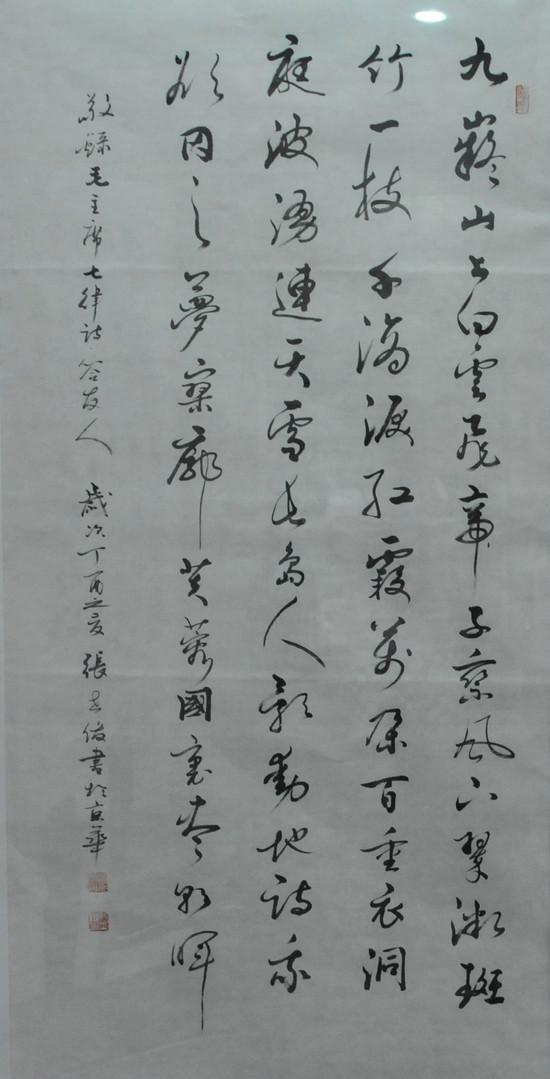 九嶷山上白雲飛帝子乘風下翠微斑
竹一枝千滴淚紅霞萬朵百重衣洞
庭波湧連天雪長島人歌動地詩我
欲因之夢寥廓芙蓉國裏盡朝暉
敬錄毛主席七律詩答友人 歲次丁酉之夏 張俊書於京華